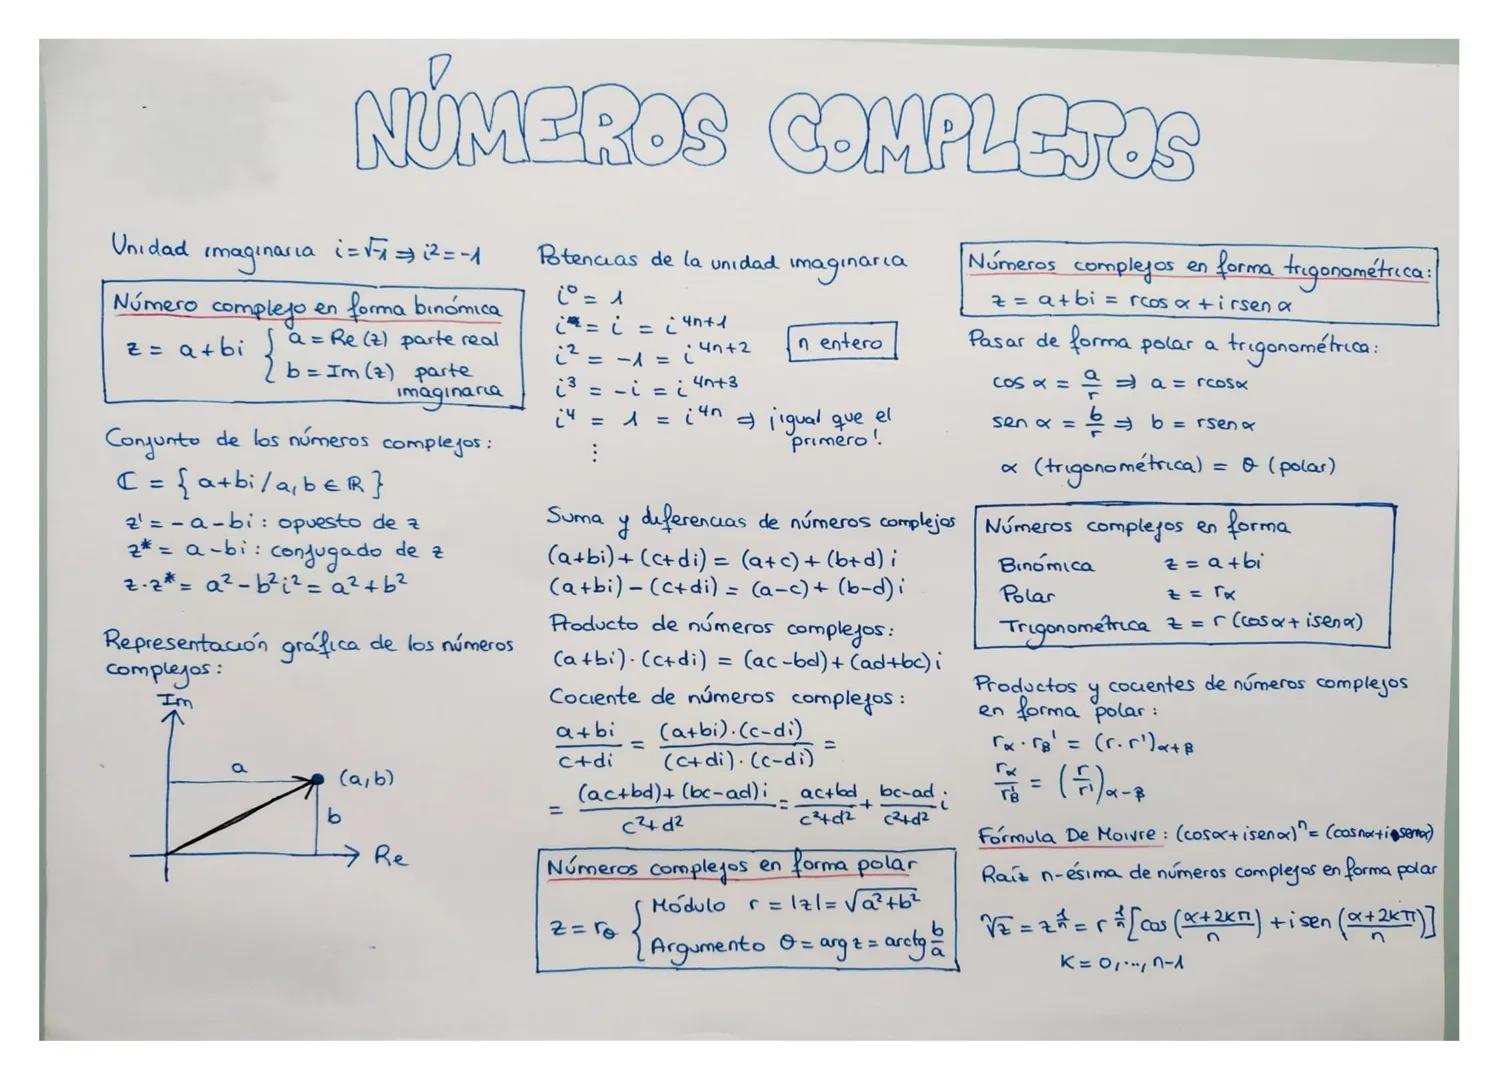 NÚMEROS COMPLEJOS
Unidad imaginaria i=√-1 ⇒ i²=-1
Número complejo en forma binómica
z = a+bi { a = Re(z) parte real
b = Im(z) parte
imaginaria
Conjunto de los números complejos:
ℂ = { a+bi/a,b ∈ ℝ }
z' = -a-bi: opuesto de z
z* = a-bi: conjugado de z
z·z* = a²-b²i² = a²+b²
Representación gráfica de los números
complejos:
Im
a
(a,b)
b
Re
Potencias de la unidad imaginaria
i⁰ = 1
i = i = i⁴ⁿ⁺¹
i² = -1 = i⁴ⁿ⁺²
n entero
i³ = -i = i⁴ⁿ⁺³
i⁴ = 1 = i⁴ⁿ ⇒ ¡igual que el
primero!
⋮
Suma y diferencias de números complejos
(a+bi)+(c+di) = (a+c)+(b+d)i
(a+bi)-(c+di) = (a-c)+(b-d)i
Producto de números complejos:
(a+bi)·(c+di) = (ac-bd)+(ad+bc)i
Cociente de números complejos:
a+bi/c+di = (a+bi)·(c-di)/(c+di)·(c-di) =
= (ac+bd)+(bc-ad)i/c²+d² = ac+bd/c²+d² + bc-ad/c²+d² i
Números complejos en forma polar
z = r_θ { Módulo r = |z| = √a²+b²
Argumento θ = arg z = arctg b/a
Números complejos en forma trigonométrica:
z = a+bi = rcos α + i rsen α
Pasar de forma polar a trigonométrica:
cos α = a/r ⇒ a = rcosα
sen α = b/r ⇒ b = rsen α
α (trigonométrica) = θ (polar)
Números complejos en forma
Binómica z = a+bi
Polar z = r_α
Trigonométrica z = r (cosα + isenα)
Productos y cocientes de números complejos
en forma polar:
r_α · r_β' = (r·r')_α+β
r_α/r'_β = (r/r')_α-β
Fórmula De Moivre: (cosα+isenα)ⁿ = (cosnα+isennα)
Raíz n-ésima de números complejos en forma polar
ⁿ√z = z^1/n = r^1/n [cos (α+2kπ/n) + i sen (α+2kπ/n)]
K = 0,..., n-1